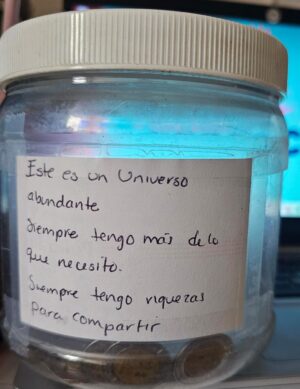 Este es un Universo
abundante
Siempre tengo más de lo
que necesito.
Siempre tengo riquezas
Para compartir